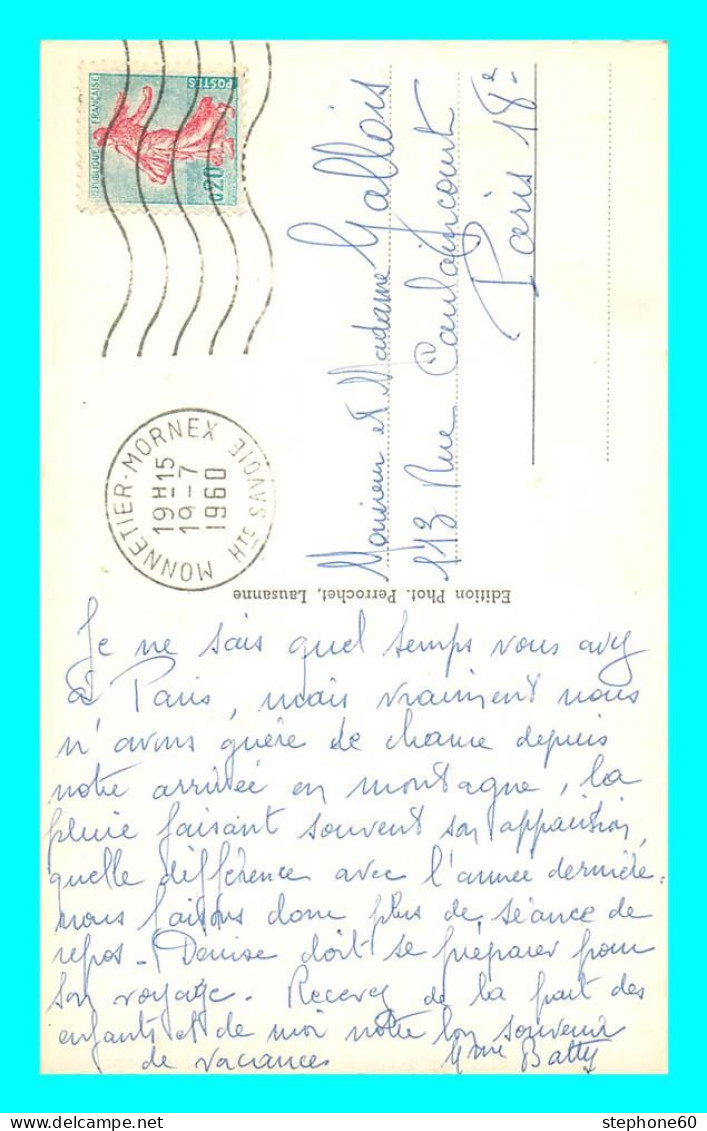 REPUBLIQUE FRANÇAISE
POSTES
0,20
MONNETIER-MORNEX
HTE SAVOIE
19 H 15
19 - 7
1960
Monsieur et Madame Gallois
113 Rue Caulaincourt
Paris 18e
Edition Phot. Perrochet, Lausanne
Je ne sais quel temps vous avez
à Paris, mais vraiment nous
n'avons guère de chance depuis
notre arrivée en montagne, la
pluie faisant souvent son apparition,
quelle différence avec l'année dernière.
nous faisons donc plus de séance de
repos - Denise doit se préparer pour
son voyage. Recevez de la part des
enfants et de moi notre bon souvenir
de vacances Mme Batty
stephone60